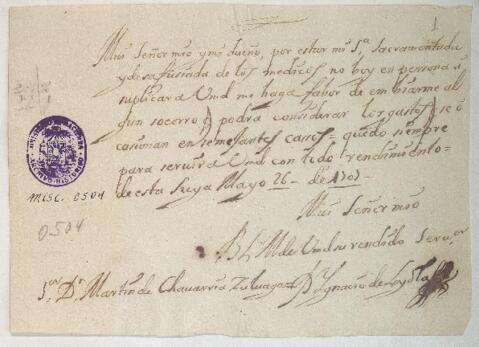 1
Mui Señor mio y mi dueño, por estar mi Sª sacramentada
y desafusiada de los medicos no boy en persona a
suplicar a Vmd me haga fabor de embiarme al
gun socorro q podra considerar los gastos q se o
casionan en semejantes casos, quedo siempre
para servir a Vmd con todo rendimiento
de esta suya Mayo 26 de 1707
Mui Señor mio
B L M de Vmd su rendido servor
Sor Dn Martin de Chavarria Zuluaga Dn Ignacio de Loyola
ARCHIVO HISTORICO
MISC. 0504
0504